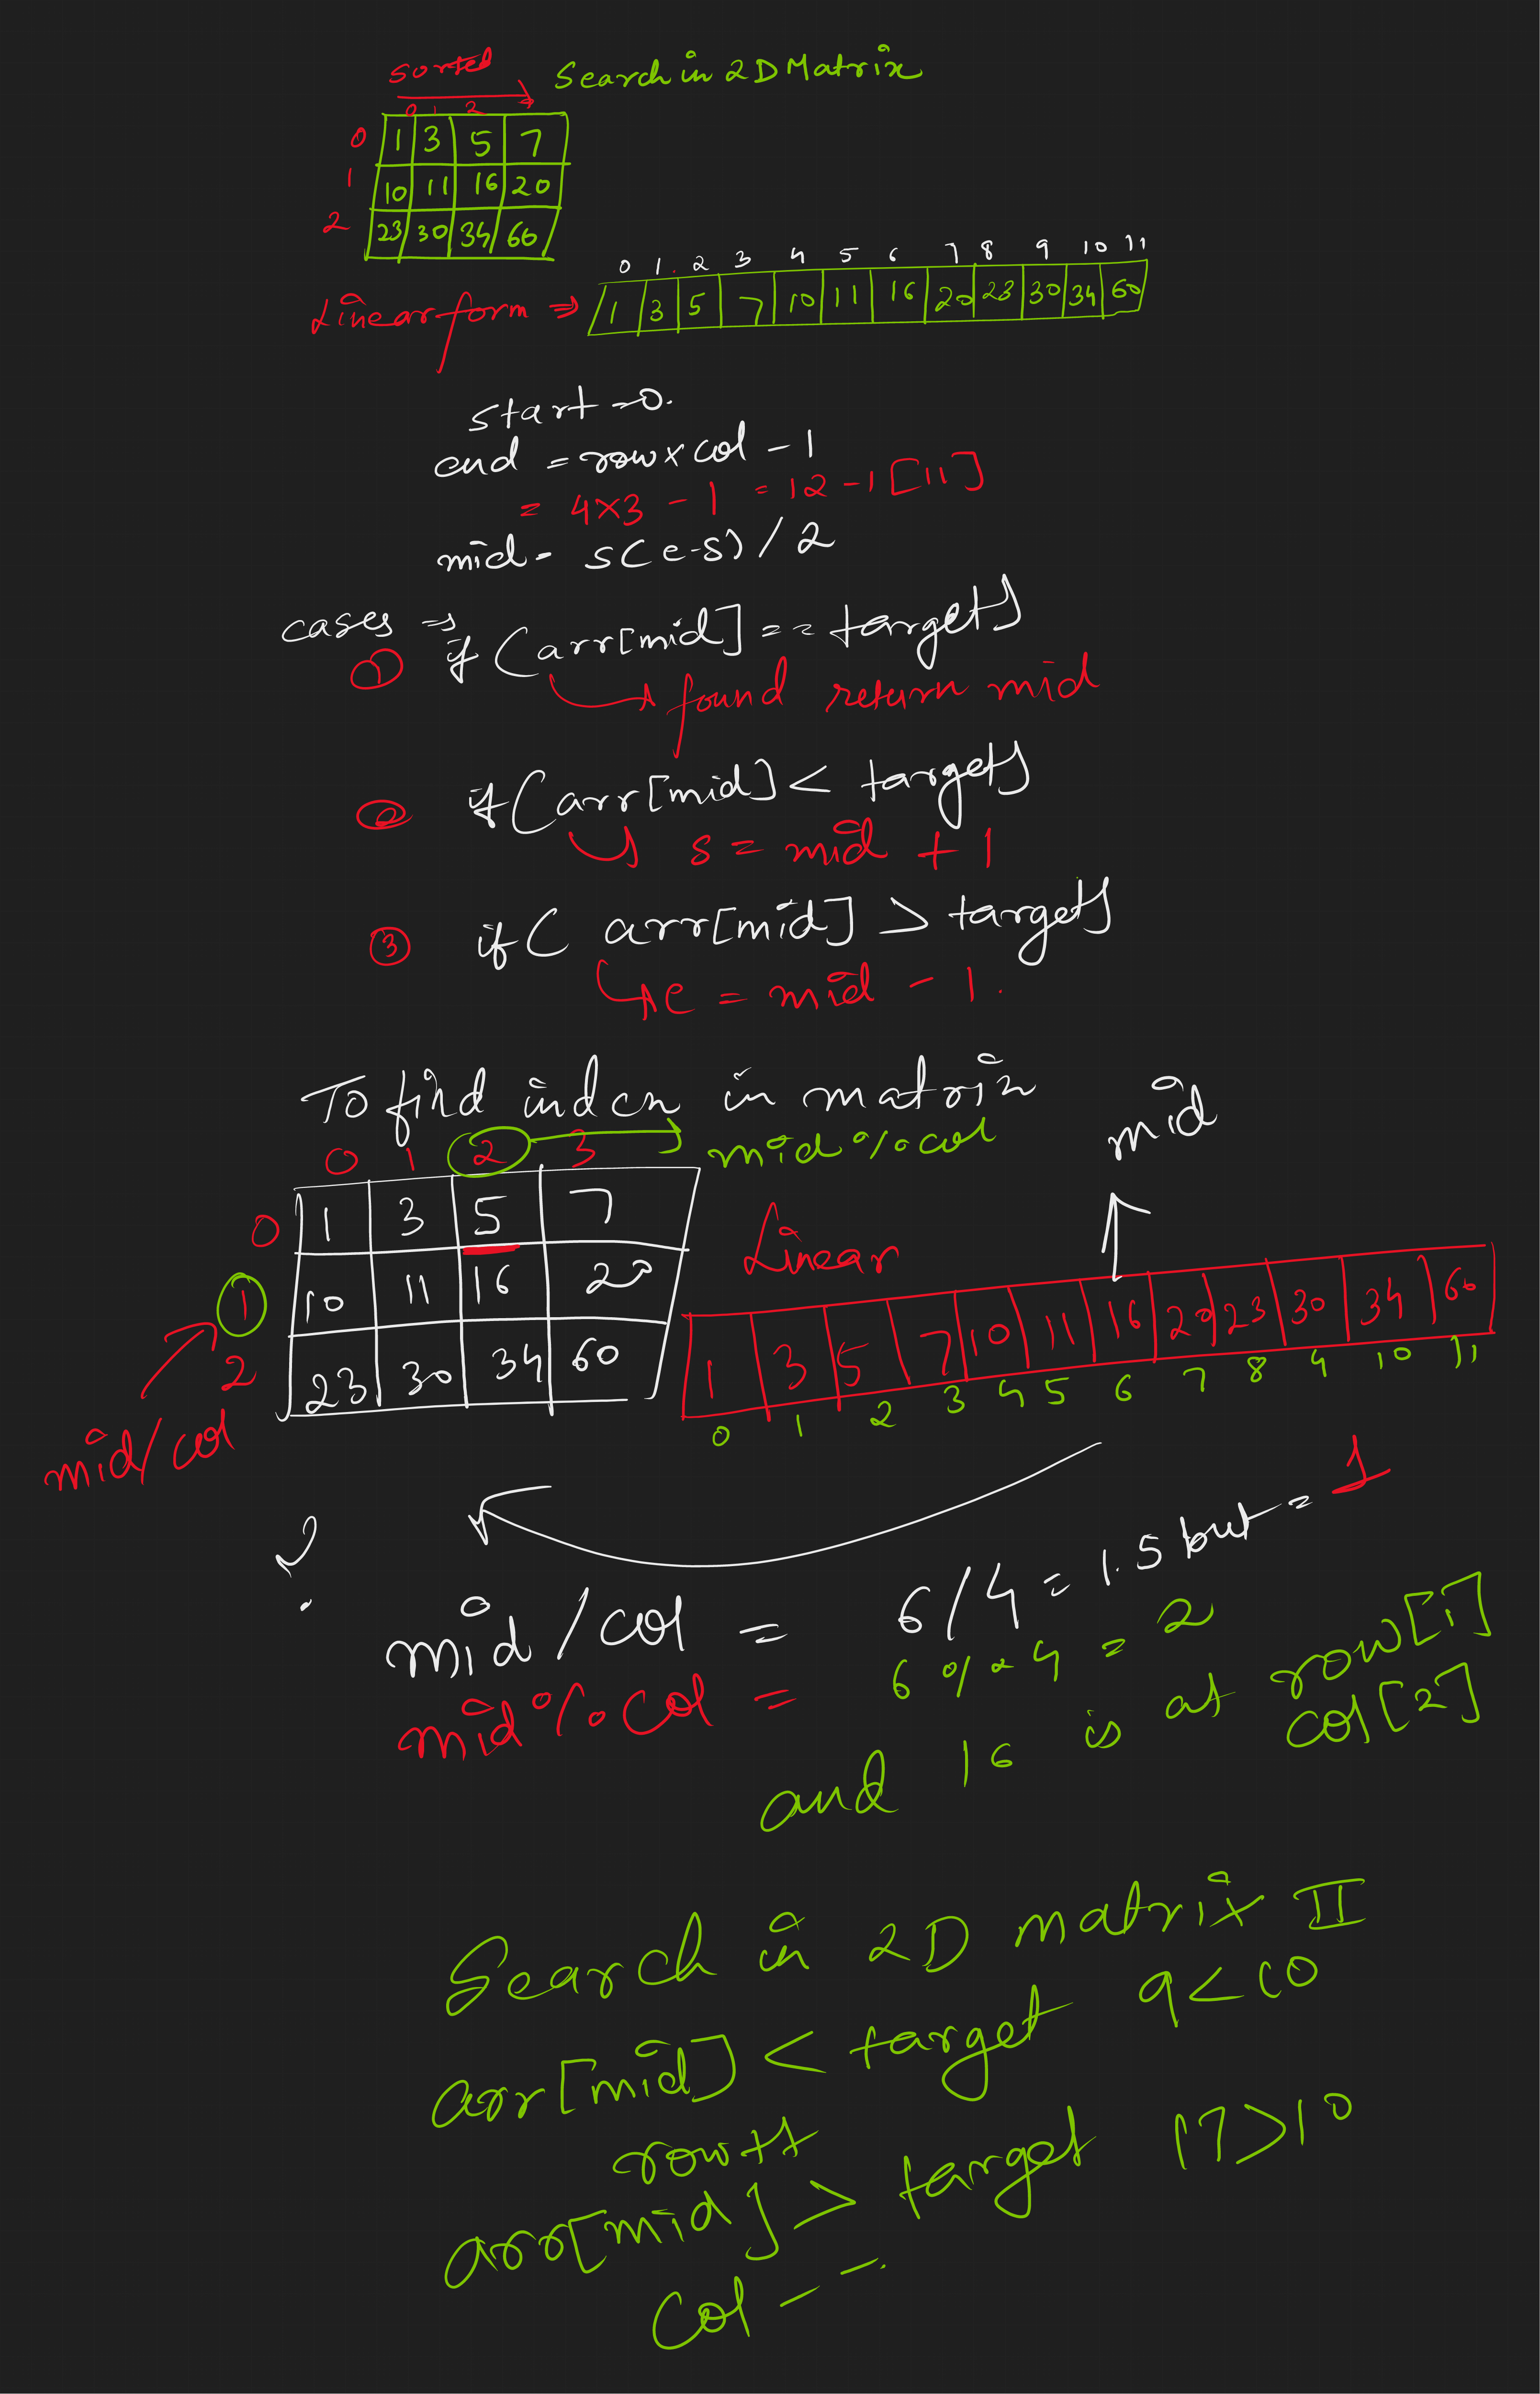 sorted
Search in 2D Matrix
0 1 2
0 1 3 5 7
1 10 11 16 20
2 23 30 34 60
0 1 2 3 4 5 6 7 8 9 10 11
Linear form ⇒ 1 3 5 7 10 11 16 20 23 30 34 60
start = 0.
end = row x col - 1
= 4x3 - 1 = 12 - 1 [11]
mid = s(e-s)/2
cases ⇒
① if (arr[mid] == target)
found return mid
② if (arr[mid] < target)
s = mid + 1
③ if ( arr[mid] > target)
e = mid - 1.
To find index in matrix
mid
0 1 2 3 mid % col
0 1 3 5 7
1 10 11 16 20
2 23 30 34 60
mid/col
Linear
1 3 5 7 10 11 16 20 23 30 34 60
0 1 2 3 4 5 6 7 8 9 10 11
mid/col = 6/4 = 1.5 but = 1
mid % col = 6 % 4 = 2
and 16 is at row[1]
col[2]
Search in 2D matrix II
arr[mid] < target 9 < 10
row++
arr[mid] > target 17 > 10
Col--